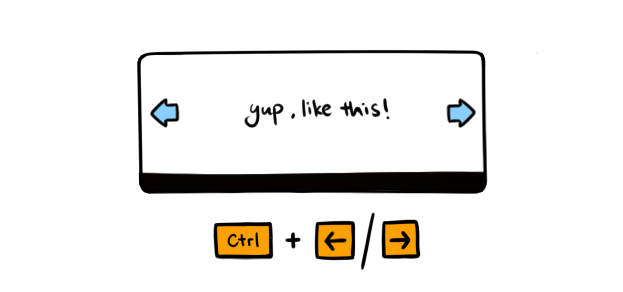 yup, like this!
Ctrl + ← / →